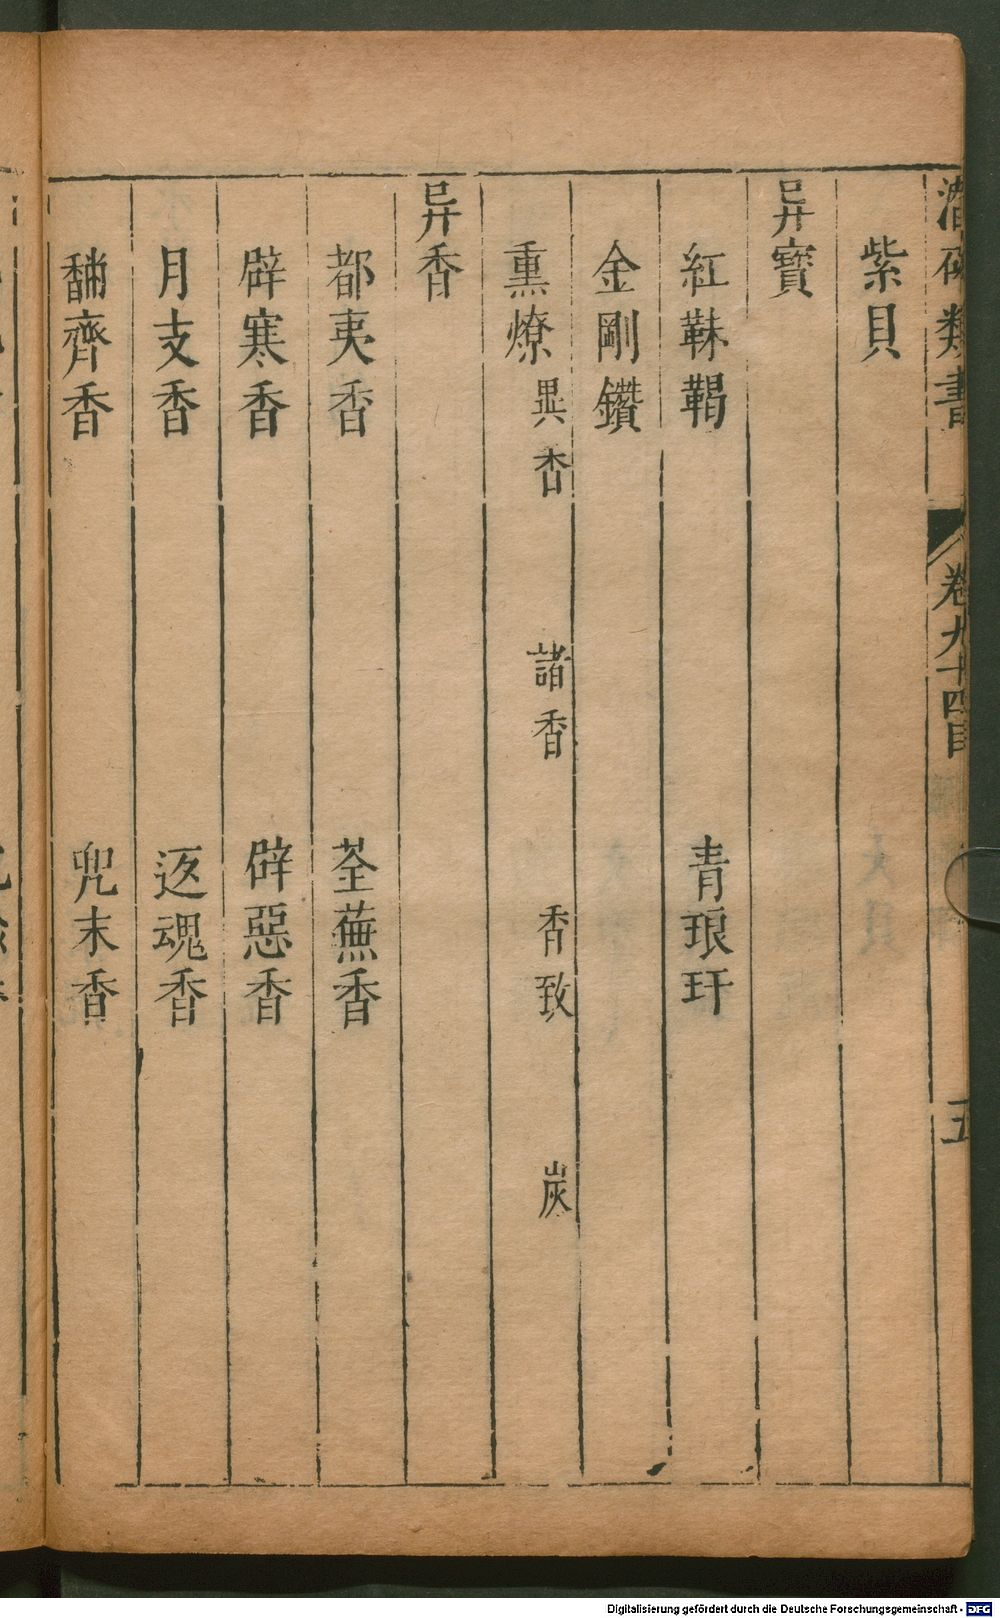 潛確類書 卷九十四目 五
紫貝
异寶
紅靺鞨 青琅玕
金剛鑽
熏燎 異香 諸香 香致 炭
异香
都夷香 荃蕪香
辟寒香 辟惡香
月支香 返魂香
䭱齊香 兜末香
Digitalisierung gefördert durch die Deutsche Forschungsgemeinschaft - DFG